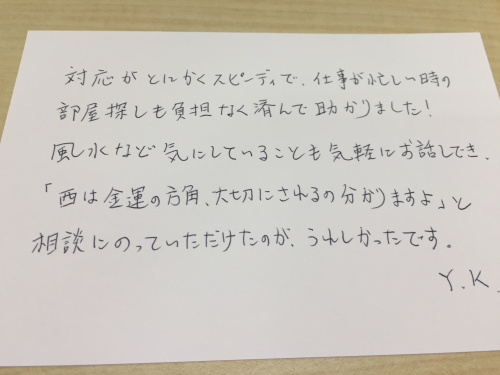 対応がとにかくスピーディで、仕事が忙しい時の
部屋探しも負担なく済んで助かりました!
風水など気にしていることも気軽にお話しでき、
「西は金運の方角、大切にされるの分かりますよ」と
相談にのっていただけたのが、うれしかったです。
Y.K.